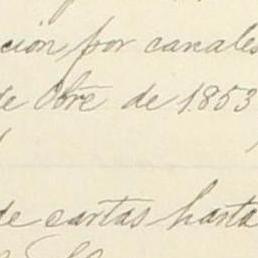 ción por canales
de Obre de 1853
de cartas hasta